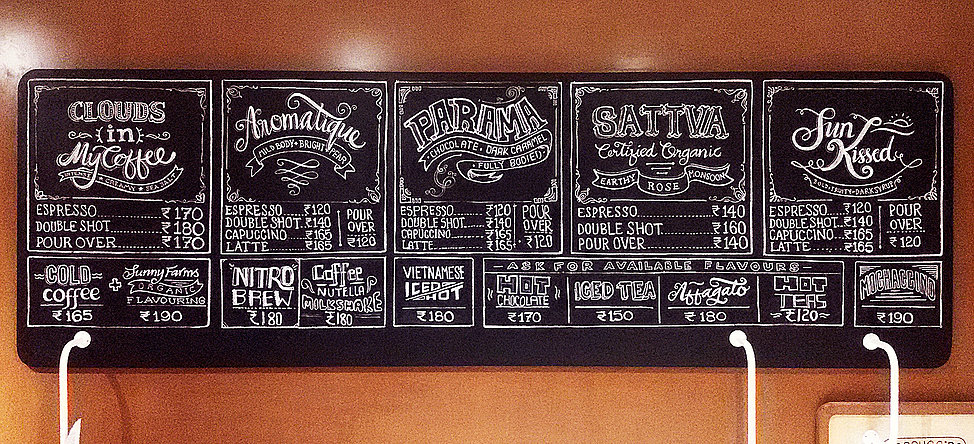 CLOUDS
in
My Coffee
INTENSE • CREAMY • SEA SALT
ESPRESSO ₹170
DOUBLE SHOT ₹180
POUR OVER ₹170
Aromatique
MILD BODY • BRIGHT • PEAR
ESPRESSO ₹120
DOUBLE SHOT ₹140
CAPUCCINO ₹165
LATTE ₹165
POUR
OVER
₹120
PARAMA
CHOCOLATE • DARK CARAMEL
• FULLY BODIED •
ESPRESSO ₹120
DOUBLE SHOT ₹140
CAPUCCINO ₹165
LATTE ₹165
POUR
OVER
₹120
SATTVA
Certified Organic
EARTHY ROSE MONSOON
ESPRESSO ₹140
DOUBLE SHOT ₹160
POUR OVER ₹140
Sun
Kissed
BOLD • FRUITY • DARK SYRUP
ESPRESSO ₹120
DOUBLE SHOT ₹140
CAPUCCINO ₹165
LATTE ₹165
POUR
OVER
₹120
COLD
coffee
₹165
+ Sunny Farms
ORGANIC
FLAVOURING
₹190
NITRO
BREW
₹180
Coffee
NUTELLA
MILKSHAKE
₹180
VIETNAMESE
ICED HOT
₹180
ASK FOR AVAILABLE FLAVOURS
HOT
CHOCOLATE
₹170
ICED TEA
₹150
Affogato
₹180
HOT
TEAS
₹120
MOCHACCINO
₹190